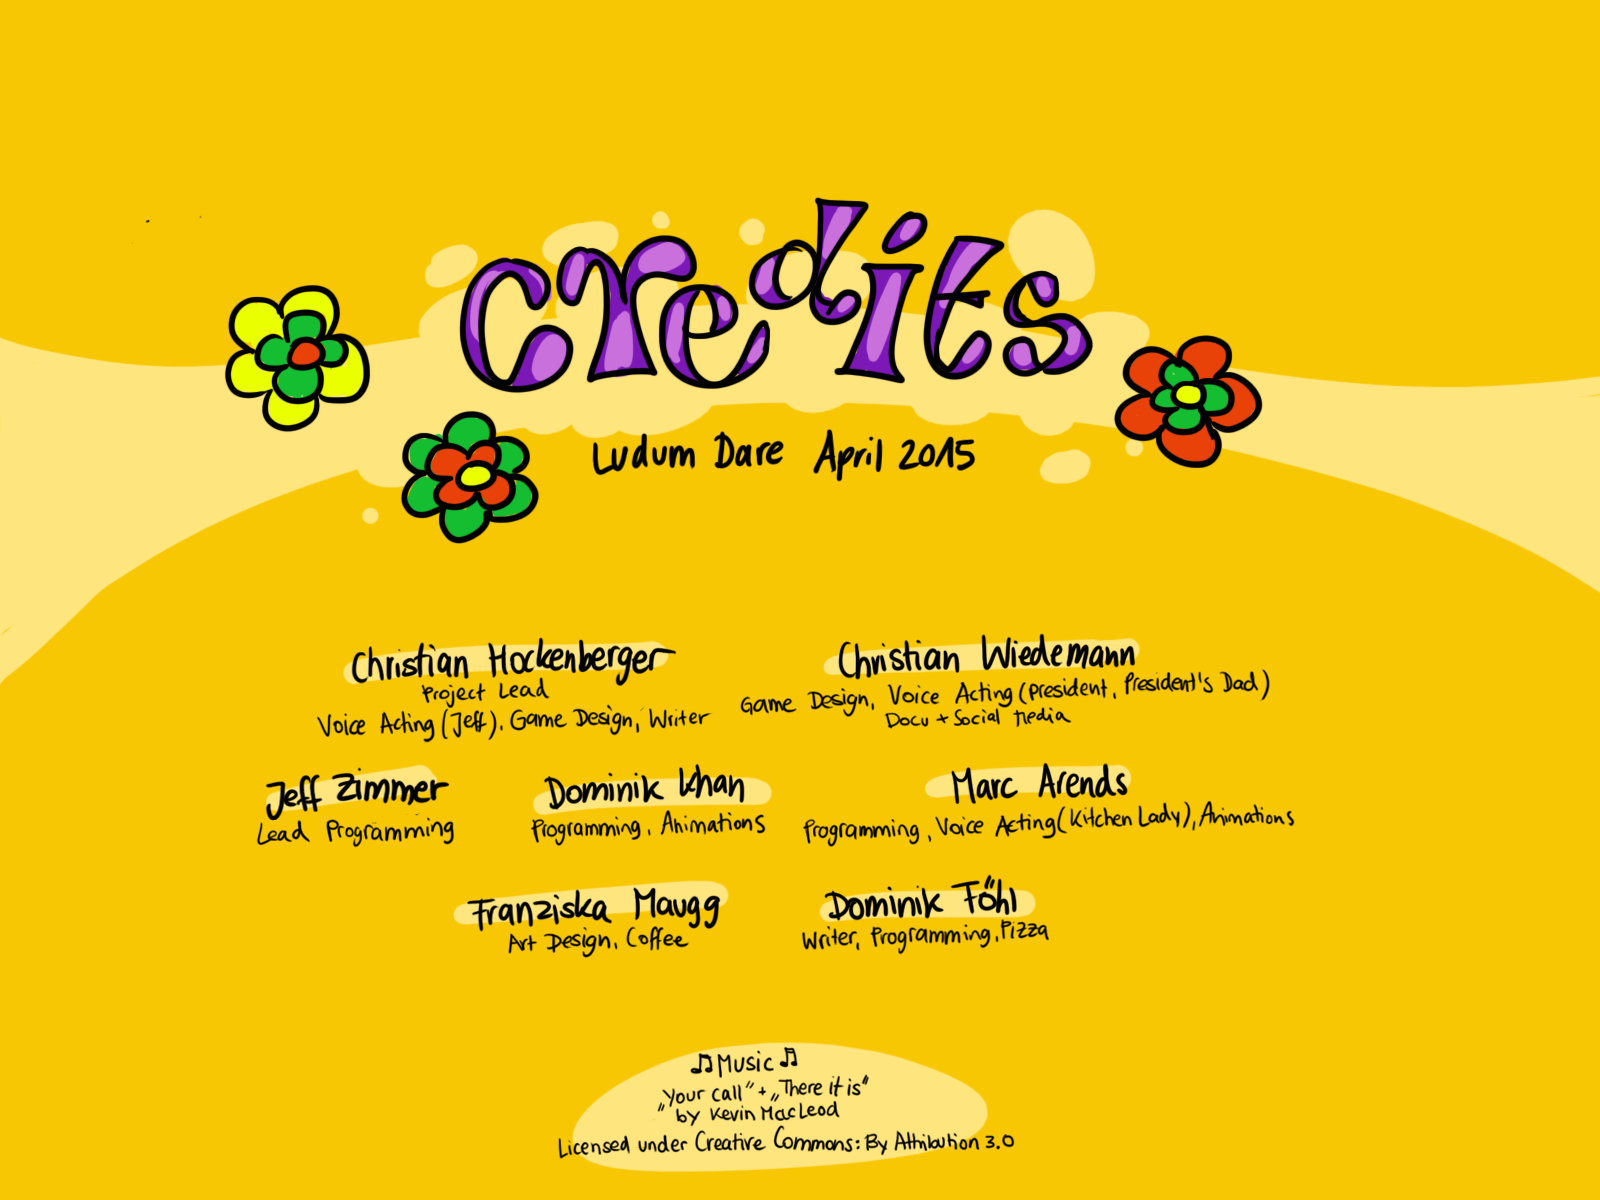 Credits
Ludum Dare April 2015
Christian Hockenberger
Project Lead
Voice Acting (Jeff), Game Design, Writer
Christian Wiedemann
Game Design, Voice Acting (President, President's Dad)
Docu + Social Media
Jeff Zimmer
Lead Programming
Dominik Khan
Programming, Animations
Marc Arends
Programming, Voice Acting (Kitchen Lady), Animations
Franziska Maugg
Art Design, Coffee
Dominik Föhl
Writer, Programming, Pizza
♫ Music ♫
„Your call“ + „There it is“
by Kevin MacLeod
Licensed under Creative Commons: By Attribution 3.0